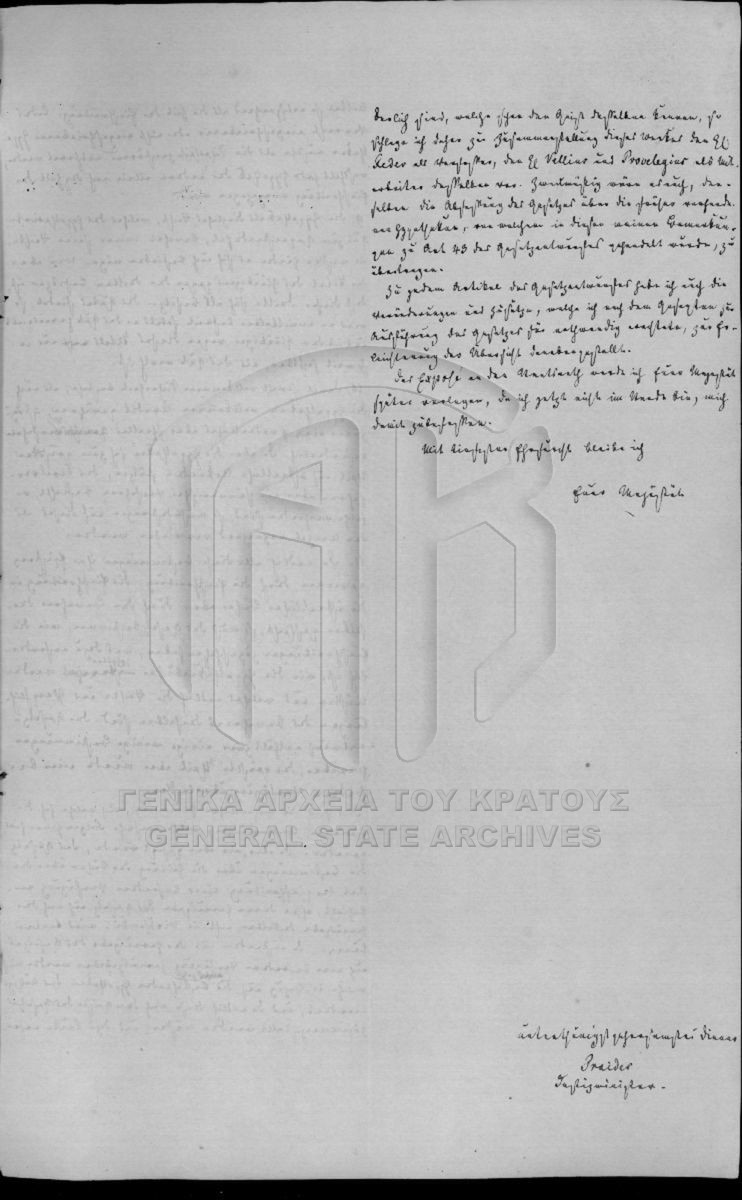 derlich sind, welche schon den Geist desselben kennen, so
schlage ich daher zur Zusammenstellung dieses Werkes den H.
Feder als Verfasser, den H. Vellios und Provelegios als Mit-
arbeiter desselben vor. Zweckmäßig wäre es auch, den-
selben die Abfassung des Gesetzes über die früher vorhande-
nen Hypotheken, von welchem in diesen meinen Bemerkun-
gen zu Art 43 des Gesetzentwurfes gehandelt wurde, zu
übertragen.
Zu jedem Artikel des Gesetzentwurfes habe ich auch die
Veränderungen und Zusätze, welche ich nach dem Gesagten zur
Ausführung des Gesetzes für nothwendig erachtete, zur Er-
leichterung der Übersicht danebengestellt.
Das Exposé an den Staatsrath werde ich Euer Majestät
später vorlegen, da ich jetzt nicht im Stande bin, mich
damit zu befassen.
Mit tiefster Ehrfurcht bleibe ich
Euer Majestät
unterthänigst gehorsamster Diener
Praides
Justizminister.
ΓΕΝΙΚΑ ΑΡΧΕΙΑ ΤΟΥ ΚΡΑΤΟΥΣ
GENERAL STATE ARCHIVES